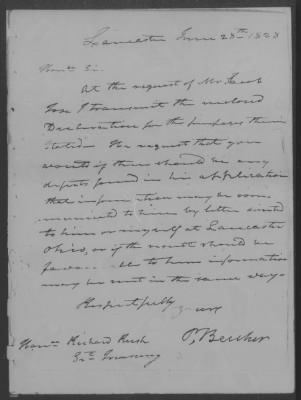 Lancaster June 28th 1828
Honble Sir
At the request of Mr. Jacob
I transmit the inclosed
Declaration for the purposes therein
stated – He request that you
would if there should be any
defects found in his application
that information may be com
municated to him by letter
to him or myself at Lancaster
Ohio, or if the result should be
favourable to him information
may be sent in the same way.
Respectfully yours
P, Beecher
Honble Richard Rush
Treasury